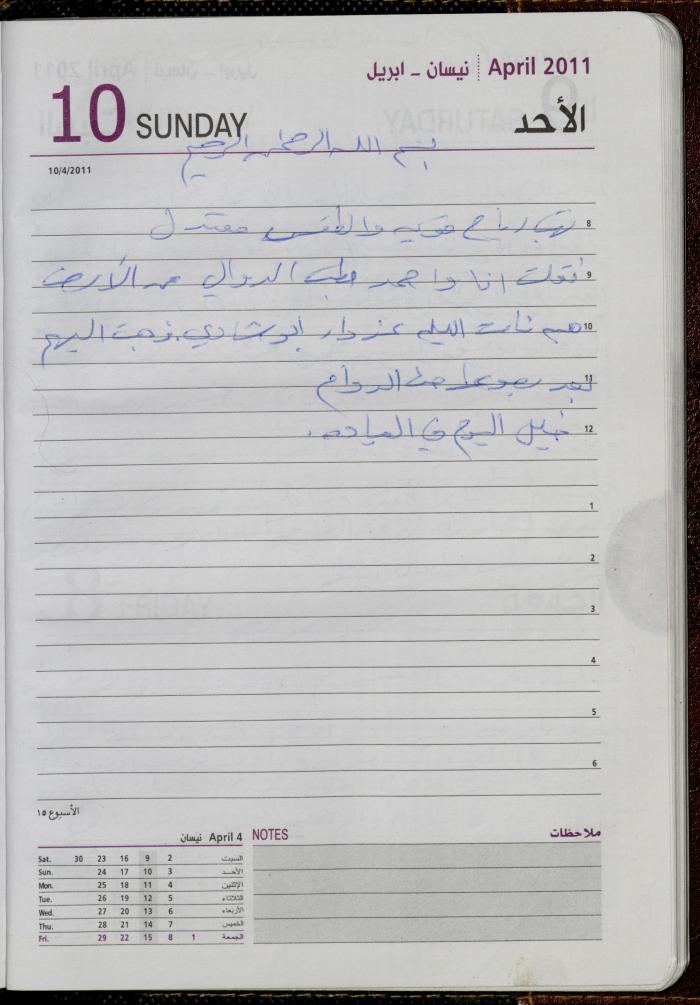 April 2011 نيسان ـ ابريل
10 SUNDAY الأحد
10/4/2011
بسم الله الرحمن الرحيم
8 تهب رياح قوية والطقس معتدل
9 نقلت انا واحمد حطب الدوالي من الأرض
10 نامت الليله عند دار ابو شادي ذهبت اليهم
11 بعد رجوعها من الدوام
12 خليل اليوم في العياده.
1
2
3
4
5
6
الأسبوع ١٥
April 4 نيسان
Sat. 30 23 16 9 2 السبت
Sun. 24 17 10 3 الأحـد
Mon. 25 18 11 4 الإثنين
Tue. 26 19 12 5 الثلاثاء
Wed. 27 20 13 6 الأربعاء
Thu. 28 21 14 7 الخميس
Fri. 29 22 15 8 1 الجمعة
NOTES ملاحظات